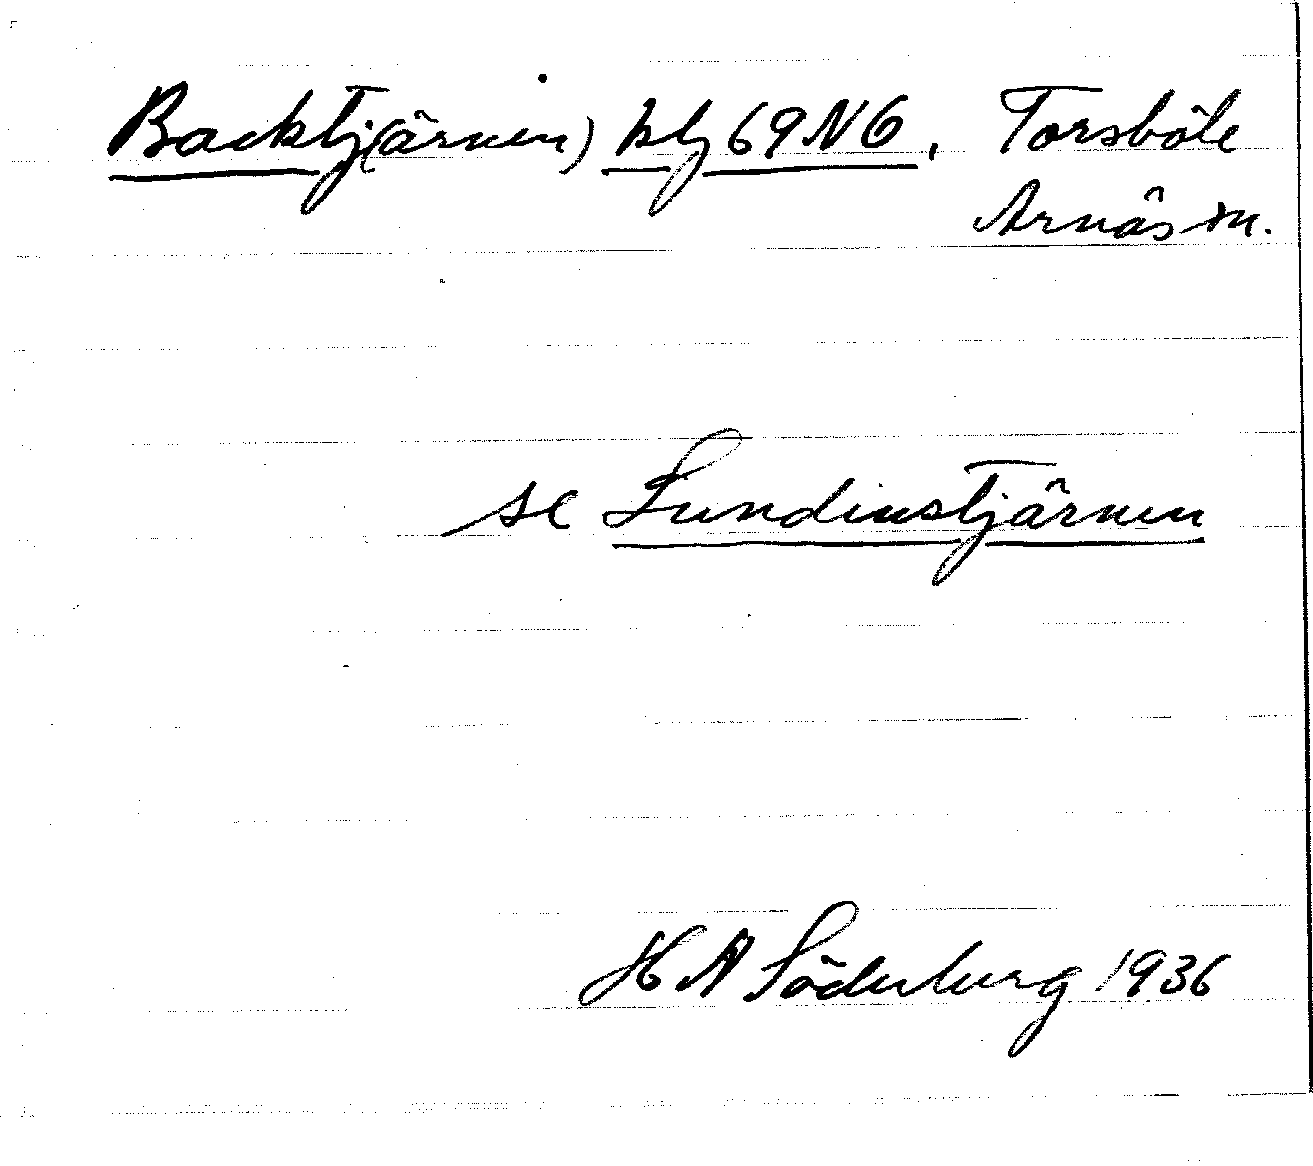 Backtj(ärnen) blg 69 N6, Torsböle
Arnäs sn.
se Lundinstjärnen
H A Söderberg 1936